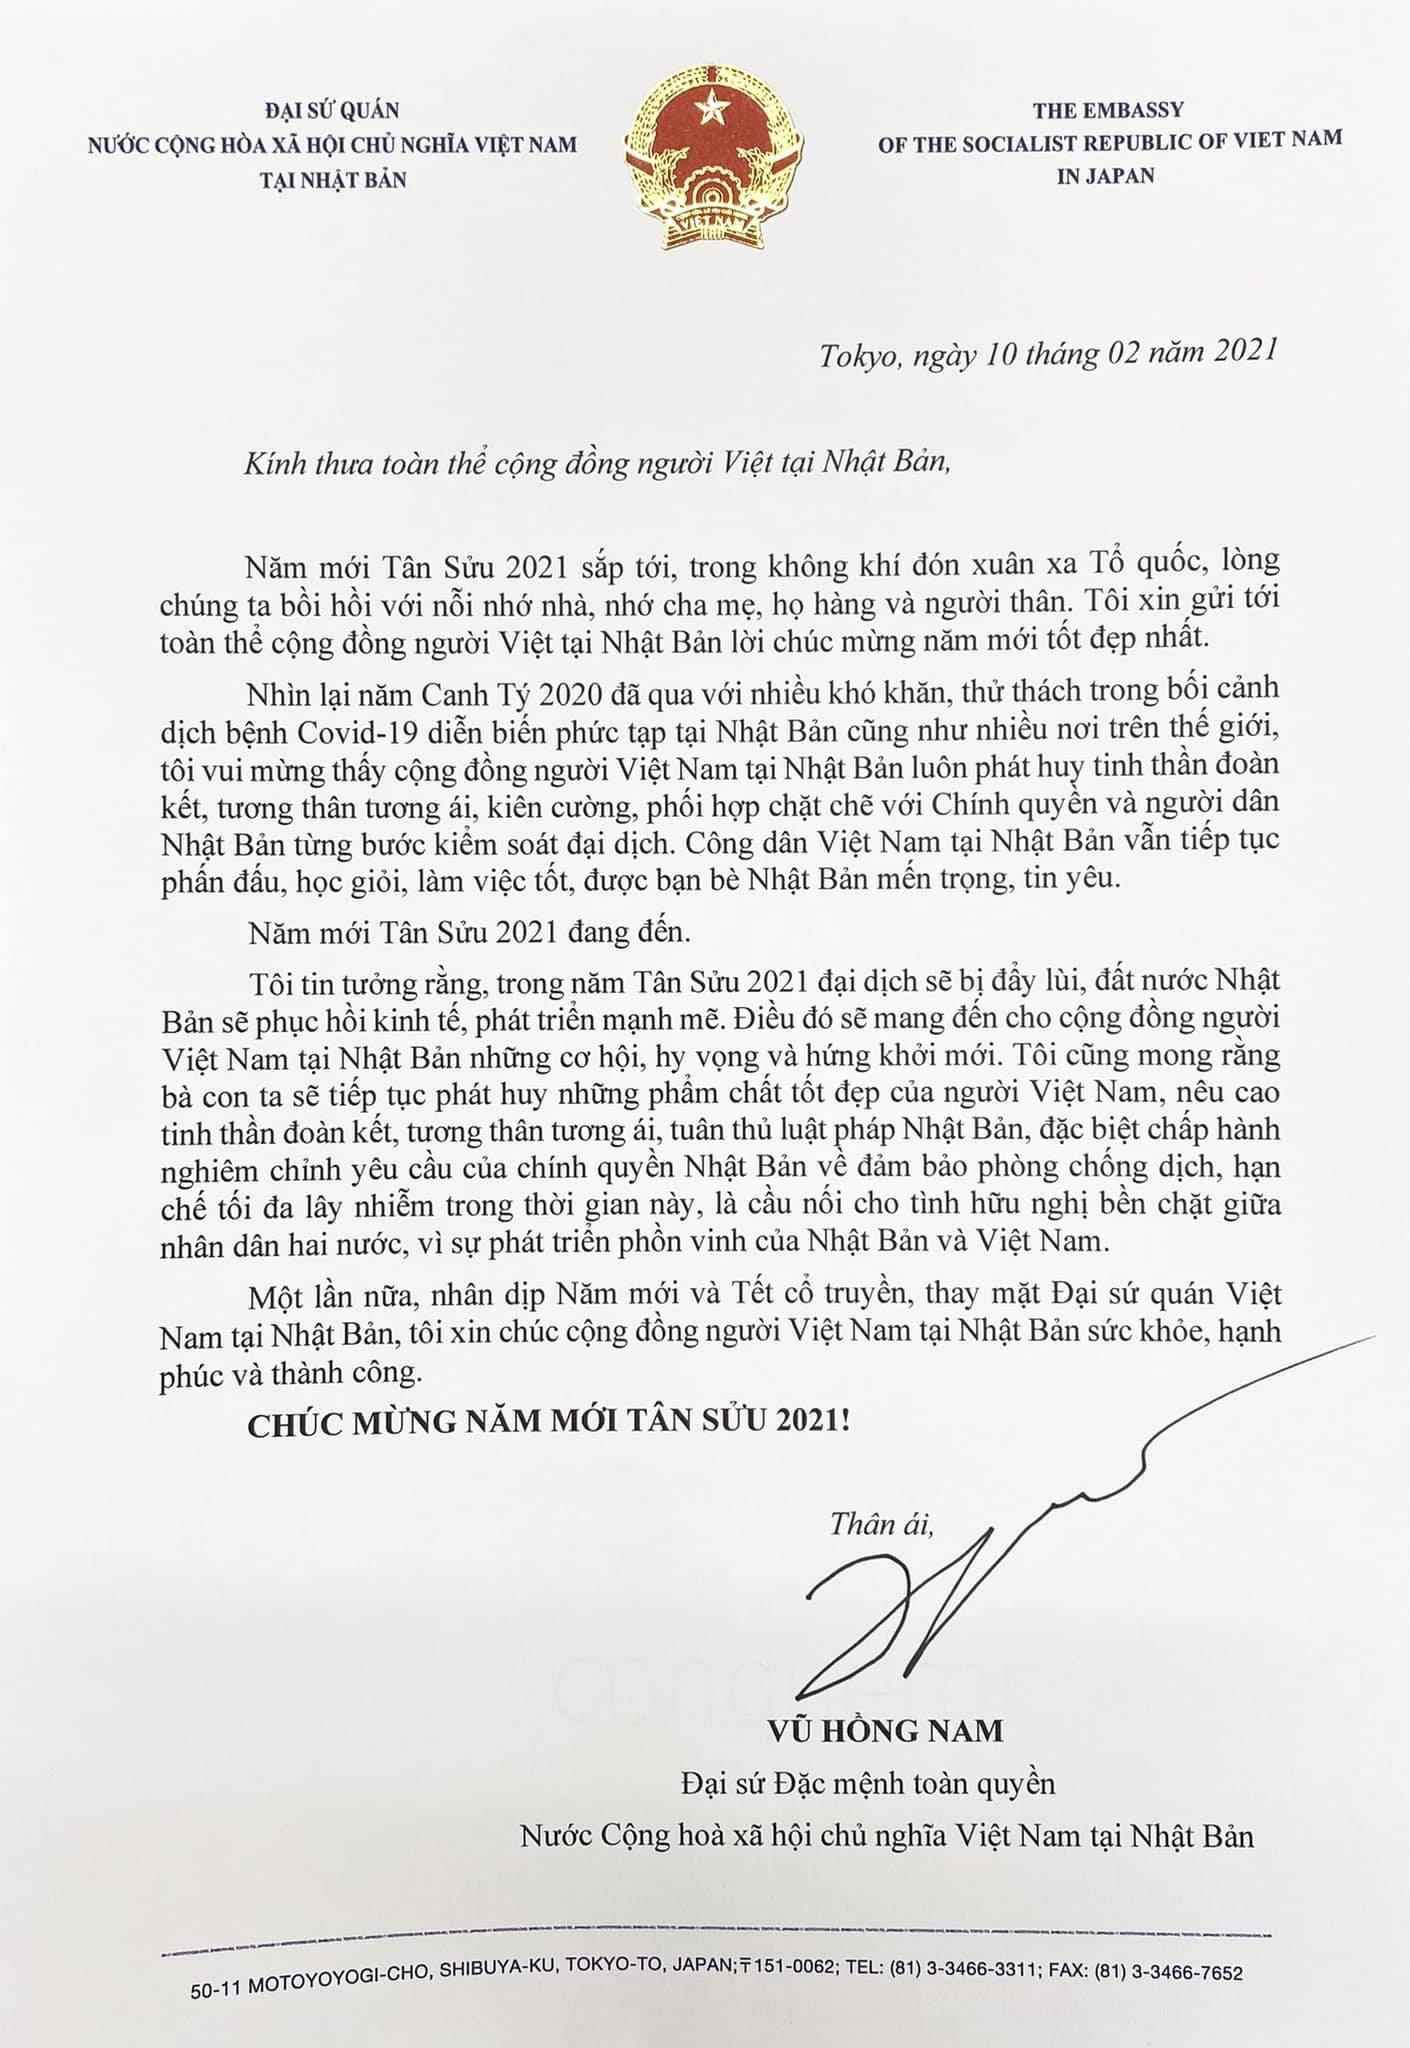 ĐẠI SỨ QUÁN
NƯỚC CỘNG HÒA XÃ HỘI CHỦ NGHĨA VIỆT NAM
TẠI NHẬT BẢN
VIỆT NAM
THE EMBASSY
OF THE SOCIALIST REPUBLIC OF VIET NAM
IN JAPAN
Tokyo, ngày 10 tháng 02 năm 2021
Kính thưa toàn thể cộng đồng người Việt tại Nhật Bản,
Năm mới Tân Sửu 2021 sắp tới, trong không khí đón xuân xa Tổ quốc, lòng
chúng ta bồi hồi với nỗi nhớ nhà, nhớ cha mẹ, họ hàng và người thân. Tôi xin gửi tới
toàn thể cộng đồng người Việt tại Nhật Bản lời chúc mừng năm mới tốt đẹp nhất.
Nhìn lại năm Canh Tý 2020 đã qua với nhiều khó khăn, thử thách trong bối cảnh
dịch bệnh Covid-19 diễn biến phức tạp tại Nhật Bản cũng như nhiều nơi trên thế giới,
tôi vui mừng thấy cộng đồng người Việt Nam tại Nhật Bản luôn phát huy tinh thần đoàn
kết, tương thân tương ái, kiên cường, phối hợp chặt chẽ với Chính quyền và người dân
Nhật Bản từng bước kiểm soát đại dịch. Công dân Việt Nam tại Nhật Bản vẫn tiếp tục
phấn đấu, học giỏi, làm việc tốt, được bạn bè Nhật Bản mến trọng, tin yêu.
Năm mới Tân Sửu 2021 đang đến.
Tôi tin tưởng rằng, trong năm Tân Sửu 2021 đại dịch sẽ bị đẩy lùi, đất nước Nhật
Bản sẽ phục hồi kinh tế, phát triển mạnh mẽ. Điều đó sẽ mang đến cho cộng đồng người
Việt Nam tại Nhật Bản những cơ hội, hy vọng và hứng khởi mới. Tôi cũng mong rằng
bà con ta sẽ tiếp tục phát huy những phẩm chất tốt đẹp của người Việt Nam, nêu cao
tinh thần đoàn kết, tương thân tương ái, tuân thủ luật pháp Nhật Bản, đặc biệt chấp hành
nghiêm chỉnh yêu cầu của chính quyền Nhật Bản về đảm bảo phòng chống dịch, hạn
chế tối đa lây nhiễm trong thời gian này, là cầu nối cho tình hữu nghị bền chặt giữa
nhân dân hai nước, vì sự phát triển phồn vinh của Nhật Bản và Việt Nam.
Một lần nữa, nhân dịp Năm mới và Tết cổ truyền, thay mặt Đại sứ quán Việt
Nam tại Nhật Bản, tôi xin chúc cộng đồng người Việt Nam tại Nhật Bản sức khỏe, hạnh
phúc và thành công.
CHÚC MỪNG NĂM MỚI TÂN SỬU 2021!
Thân ái,
VŨ HỒNG NAM
Đại sứ Đặc mệnh toàn quyền
Nước Cộng hoà xã hội chủ nghĩa Việt Nam tại Nhật Bản
50-11 MOTOYOYOGI-CHO, SHIBUYA-KU, TOKYO-TO, JAPAN;〒151-0062; TEL: (81) 3-3466-3311; FAX: (81) 3-3466-7652